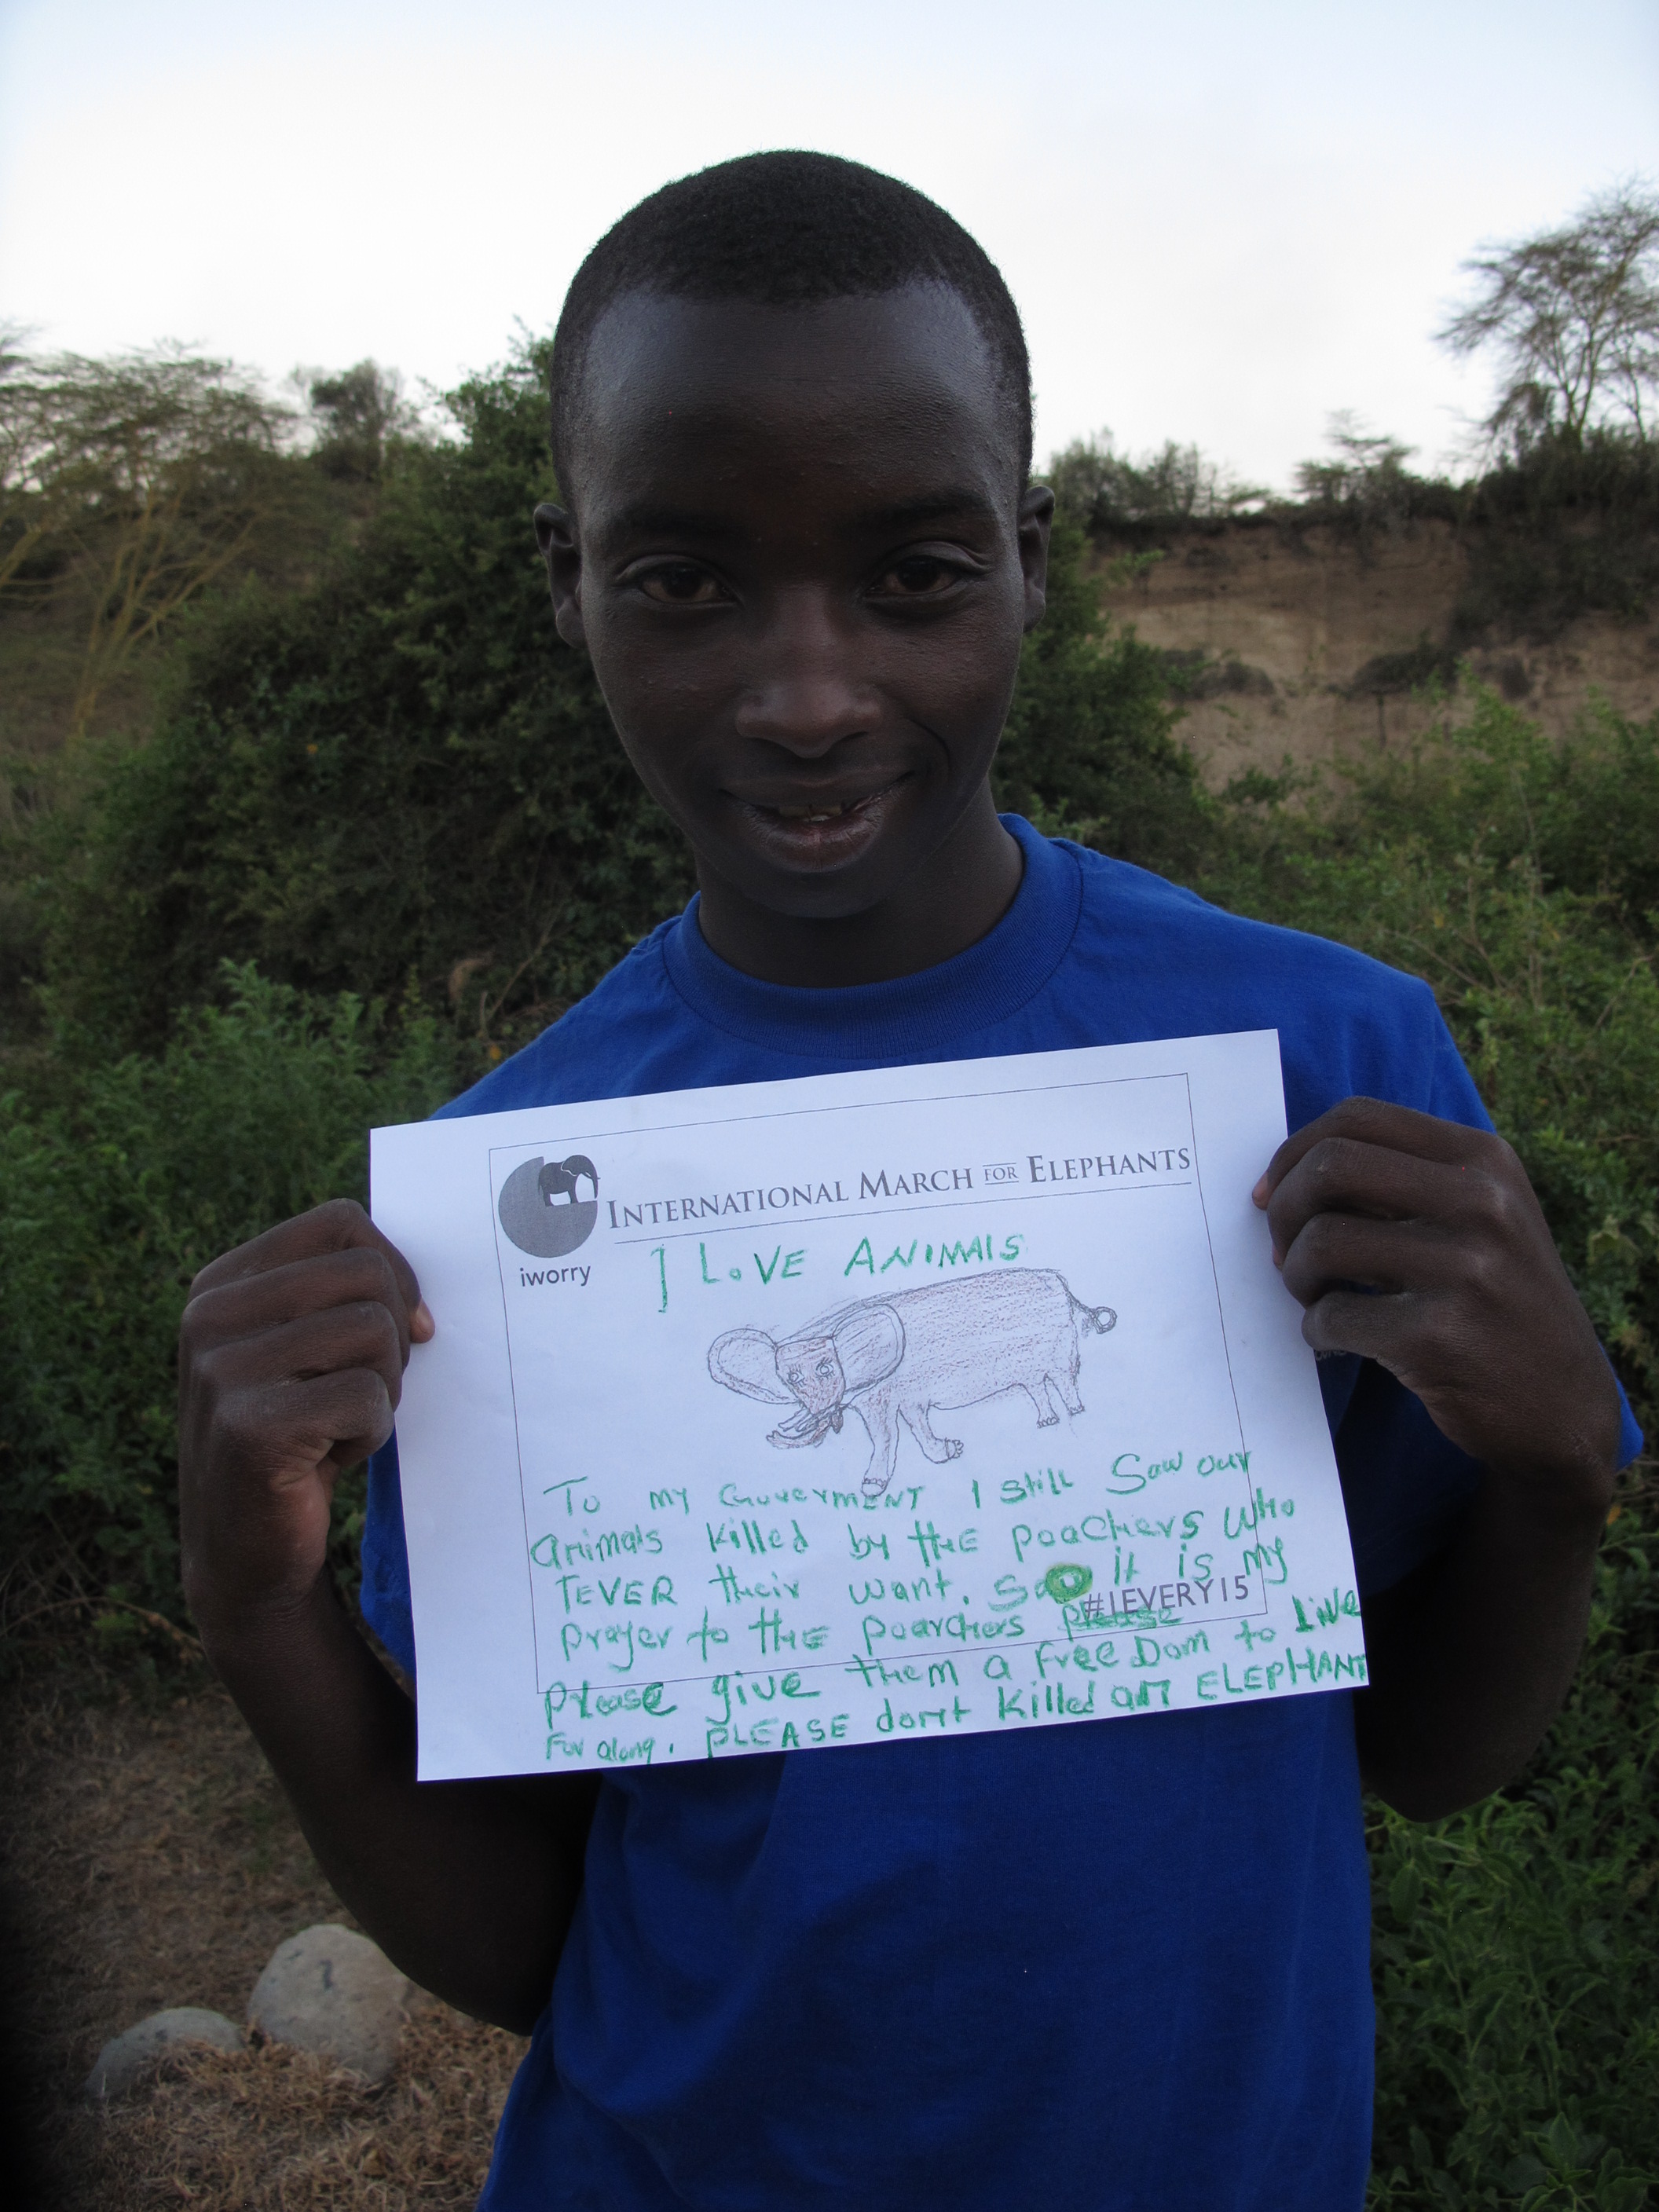 INTERNATIONAL MARCH FOR ELEPHANTS
iworry
I LOVE ANIMALS
To my Government I still Saw our
animals killed by the poachers who
TEVER their want. So it is my
prayer to the poarchers please
#1EVERY15
please give them a freeDom to live
For along. PLEASE dont killed an ELEPHANT